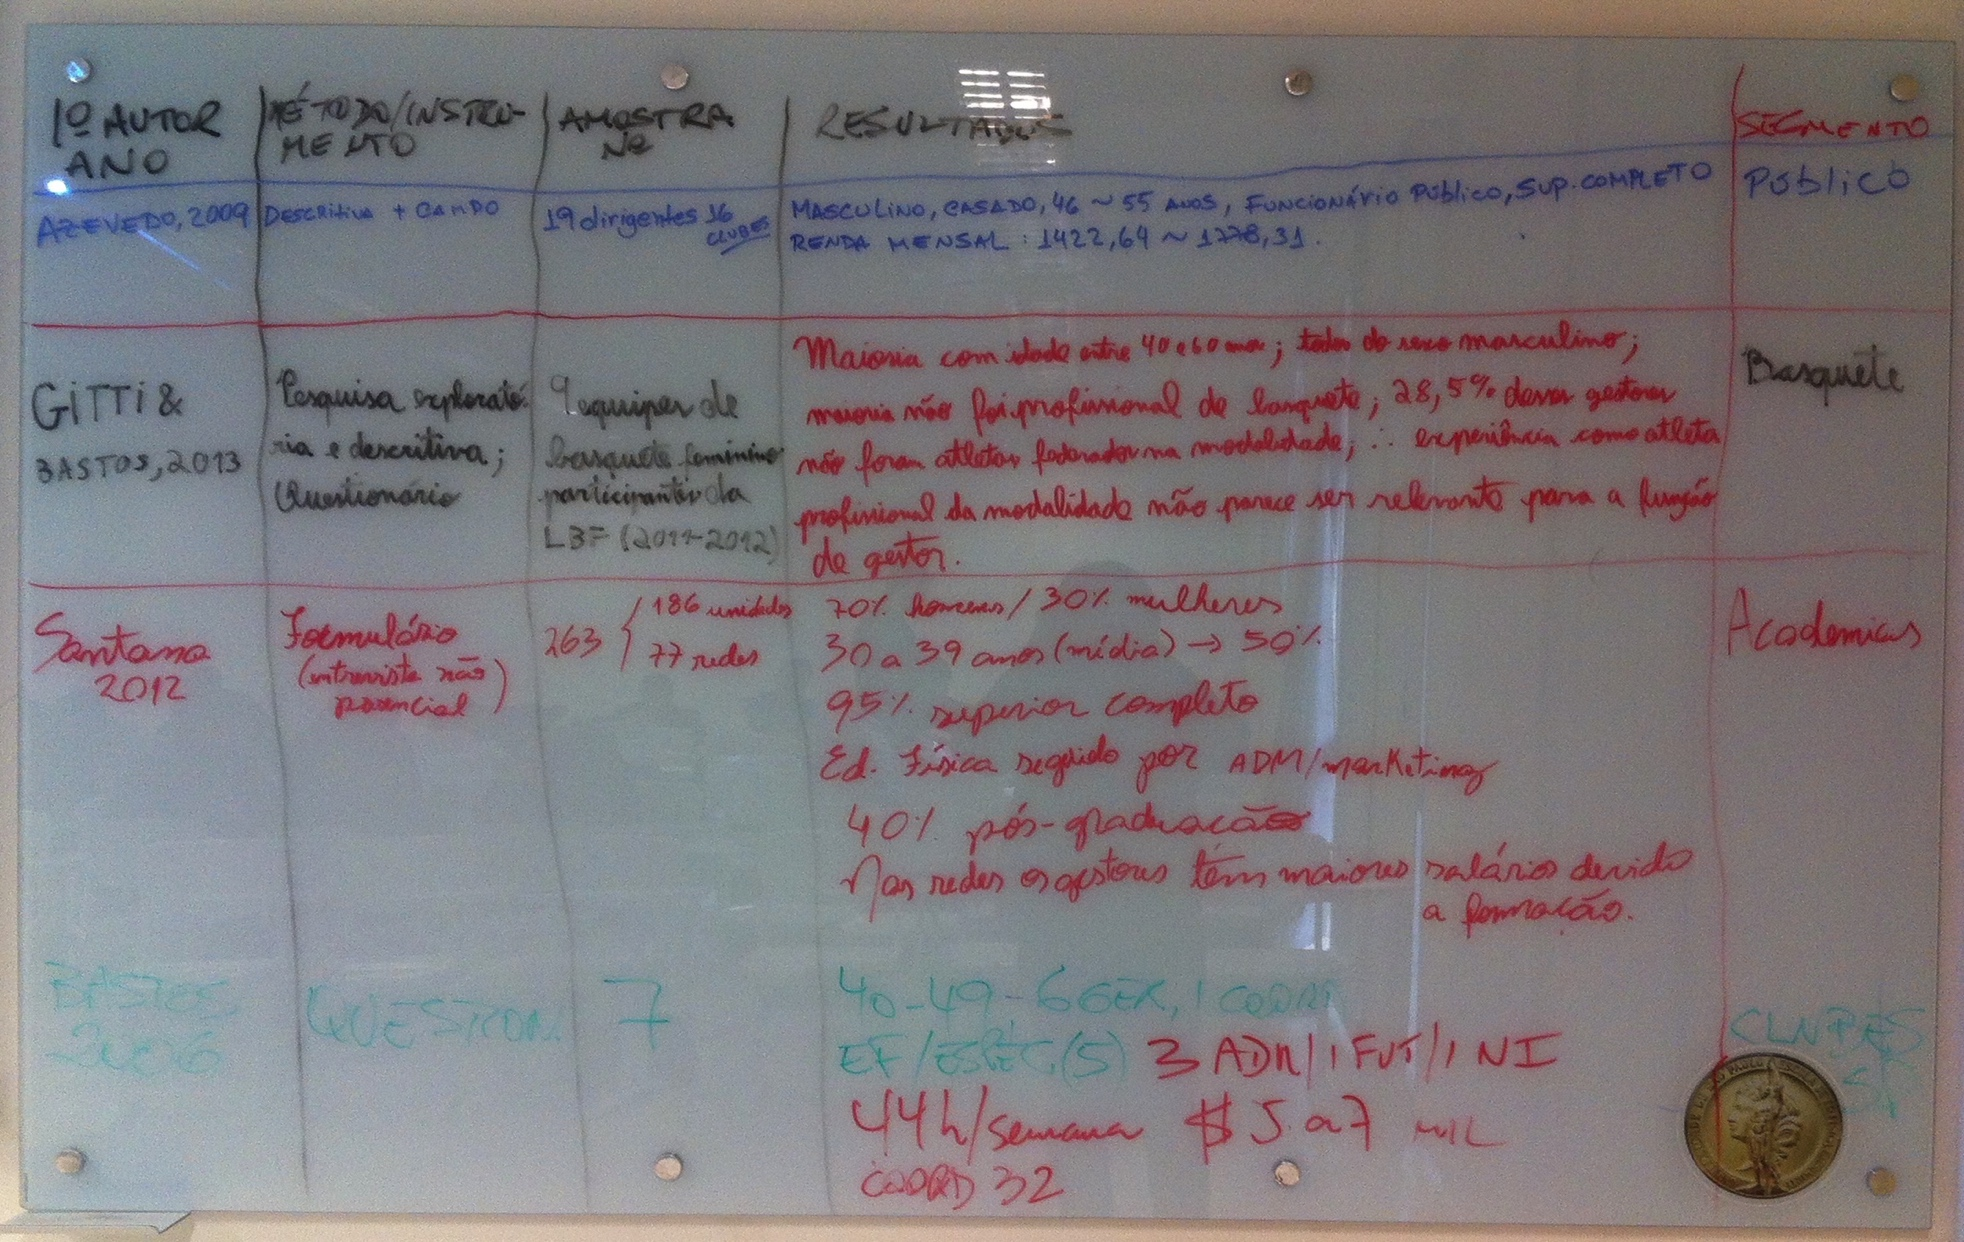 1º AUTOR
ANO
MÉTODO/INSTRU-
MENTO
AMOSTRA
Nº
RESULTADOS
SEGMENTO
AZEVEDO, 2009
DESCRITIVA + CAMPO
19 dirigentes 16
CLUBES
MASCULINO, CASADO, 46 ~ 55 ANOS, FUNCIONÁRIO PÚBLICO, SUP. COMPLETO
RENDA MENSAL: 1422,64 ~ 1778,31.
PÚBLICO
GITTI &
BASTOS, 2013
Pesquisa explorató-
ria e descritiva;
Questionário
9 equipes de
basquete feminino
participantes da
LBF (2011-2012)
Maioria com idade entre 40 e 60 anos; todos do sexo masculino;
maioria não foi profissional de basquete; 28,5% desses gestores
não foram atletas federados na modalidade; ∴ experiência como atleta
profissional da modalidade não parece ser relevante para a função
de gestor.
Basquete
Santana
2012
Formulário
(entrevista não
presencial)
263
186 unidades
77 redes
70% homens / 30% mulheres
30 a 39 anos (mídia) → 50%
95% superior completo
Ed. Física seguido por ADM/marketing
40% pós-graduação
Nas redes os gestores têm maiores salários devido
a formação.
Academias
BASTOS
2006
QUESTION.
7
40-49 - 6 GER, 1 COORD
EF/ESPEC.(5) 3 ADM/1 FUT/1 NI
44h/semana $ 5 a 7 MIL
COORD 32
CLUBES